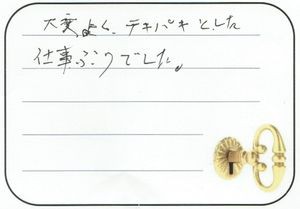 大変よく、テキパキとした
仕事ぶりでした。